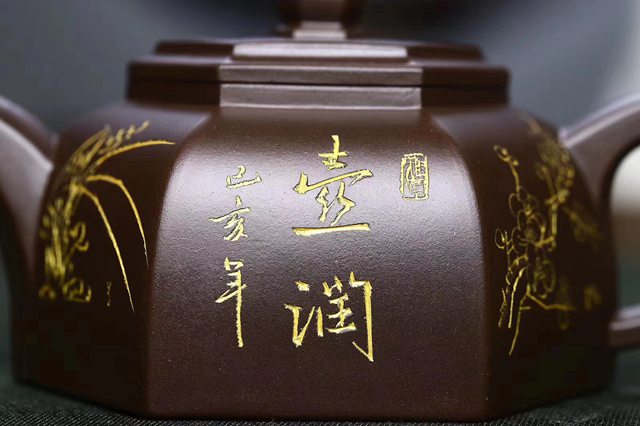 壶润
己亥年